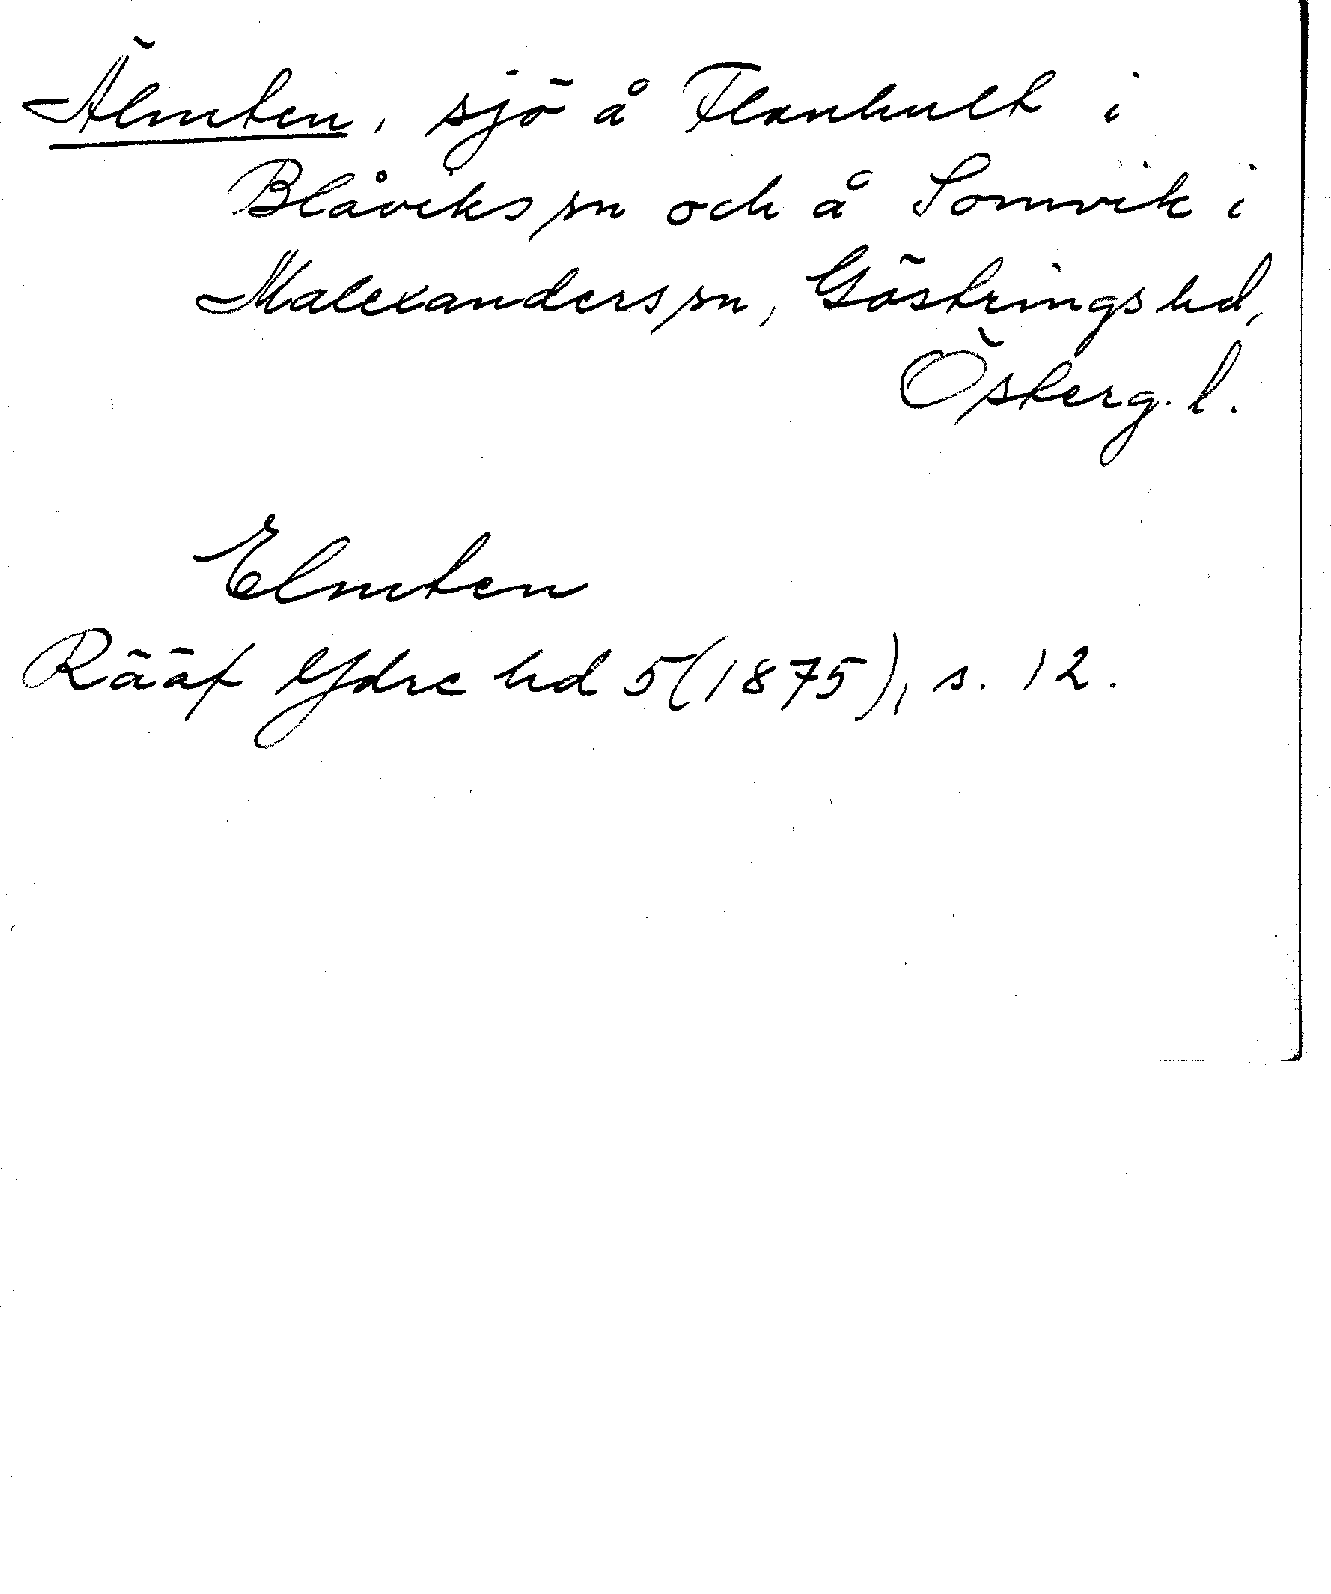 Älmten, sjö å Flanhult i
Blåviks sn och å Somvik i
Malexanders sn, Göstrings hd,
Österg. l.
Elmten
Rääf Ydre hd 5(1875), s. 12.